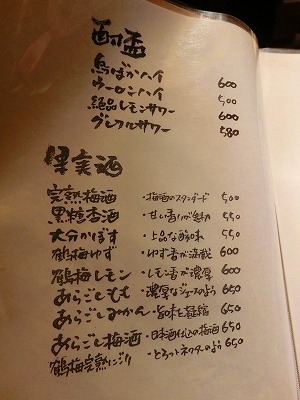 酎盃
鳥ばかハイ 600
ウーロンハイ 500
絶品レモンサワー 600
グレフルサワー 580
果実酒
完熟梅酒 ・梅酒のスタンダード 500
黒糖杏酒 ・甘い香りが魅力 550
大分かぼす ・上品な酸味 550
鶴梅ゆず ・ゆず香が満載 600
鶴梅レモン ・レモン香が濃厚 600
あらごしもも ・濃厚なジュースのよう 650
あらごしみかん ・旨味を凝縮 650
あらごし梅酒 ・日本酒仕込の梅酒 650
鶴梅完熟にごり ・とろっとネクターのよう 650